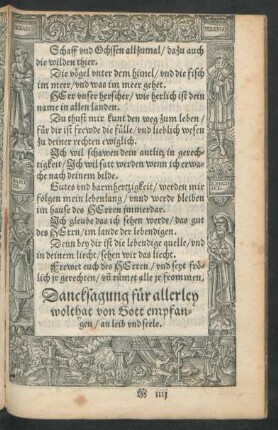 Schaff vnd Ochssen allzumal / dazu auch
die wilden thier.
Die vögel vnter dem himel / vnd die fisch
im meer / vnd was im meer gehet.
HErr vnser herscher / wie herlich ist dein
name in allen landen.
Du thust mir kunt den weg zum leben /
für dir ist frewde die fülle / vnd lieblich wesen
zu deiner rechten ewiglich.
Ich wil schawen dein antlitz in gerech-
tigkeit / Ich wil satt werden wenn ich erwa-
che nach deinem bilde.
Gutes vnd barmhertzigkeit / werden mir
folgen mein lebenlang / vnnd werde bleiben
im hause des HErren immerdar.
Ich gleube das ich sehen werde / das gut
des HErrn / im lande der lebendigen.
Denn bey dir ist die lebendige quelle / vnd
in deinem liecht / sehen wir das liecht.
Frewet euch des HErren / vnd seyt frö-
lich jr gerechten / vñ rümet alle jr frommen.
Dancksagung für allerley
wolthat von Gott empfan-
gen / an leib vnd seele.
iiij